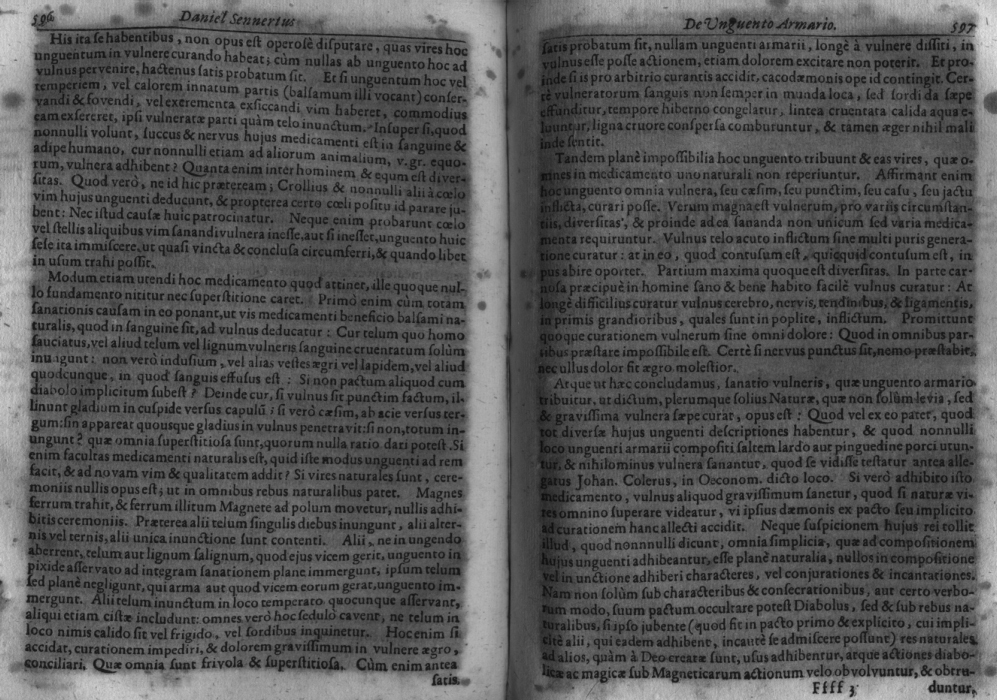 596 Daniel Sennertus
His ita se habentibus, non opus est operosè disputare, quas vires hoc
unguentum in vulnere curando habeat; cùm nullas ab unguento hoc ad
vulnus pervenire, hactenus satis probatum sit. Et si unguentum hoc vel
temperiem, vel calorem innatum partis (balsamum illi vocant) conser-
vandi & fovendi, vel excrementa exsiccandi vim haberet, commodius
eam exsereret, ipsi vulneratæ parti quàm telo inunctum. Insuper si, quod
nonnulli volunt, succus & nervus hujus medicamenti est in sanguine &
adipe humano, cur nonnulli etiam ad aliorum animalium, v. gr. equo-
rum, vulnera adhibent? Quanta enim inter hominem & equum est diver-
sitas. Quod verò, ne id hic præteream; Crollius & nonnulli alii à cœlo
vim hujus unguenti deducunt, & propterea certo cœli positu id parare ju-
bent: Nec istud causæ huic patrocinatur. Neque enim probarunt cœlo
vel stellis aliquibus vim sanandi vulnera inesse, aut si inesset, unguento huic
sese ita immiscere, ut quasi vincta & conclusa circumferri, & quando libet
in usum trahi possit.
Modum etiam utendi hoc medicamento quod attinet, ille quoque nul-
lo fundamento nititur nec superstitione caret. Primò enim cùm totam
sanationis causam in eo ponant, ut vis medicamenti beneficio balsami na-
turalis, quod in sanguine sit, ad vulnus deducatur: Cur telum quo homo
sauciatus, vel aliud telum vel lignum vulneris sanguine cruentatum solùm
inungunt: non verò indusium, vel alias vestes ægri vel lapidem, vel aliud
quodcunque, in quod sanguis effusus est: Si non pactum aliquod cum
diabolo implicitum subest? Deinde cur, si vulnus sit punctim factum, il-
linunt gladium in cuspide versus capulū; si verò cæsim, ab acie versus ter-
gum: sin appareat quousque gladius in vulnus penetravit: si non, totum in-
ungunt? quæ omnia superstitiosa sunt, quorum nulla ratio dari potest. Si
enim facultas medicamenti naturalis est, quid iste modus unguenti ad rem
facit, & ad novam vim & qualitatem addit? Si vires naturales sunt, cere-
moniis nullis opus est; ut in omnibus rebus naturalibus patet. Magnes
ferrum trahit, & ferrum illitum Magnete ad polum movetur, nullis adhi-
bitis ceremoniis. Præterea alii telum singulis diebus inungunt, alii alter-
nis vel ternis, alii unica inunctione sunt contenti. Alii, ne in ungendo
aberrent, telum aut lignum salignum, quod ejus vicem gerit, unguento in
pixide asservato ad integram sanationem plane immergunt, ipsum telum
sed planè negligunt, qui arma aut quod vicem eorum gerat, unguento im-
mergunt. Alii telum inunctum in loco temperato quocunque asservant,
aliqui etiam cistæ includunt: omnes verò hoc sedulò cavent, ne telum in
loco nimis calido sit vel frigido, vel sordibus inquinetur. Hoc enim si
accidat, curationem impediri, & dolorem gravissimum in vulnere ægro,
conciliari. Quæ omnia sunt frivola & superstitiosa. Cùm enim antea
satis
De Unguento Armario. 597
satis probatum sit, nullam unguenti armarii, longè à vulnere dissiti, in
vulnus esse posse actionem, etiam dolorem excitare non poterit. Et pro-
inde si is pro arbitrio curantis accidit, cacodæmonis ope id contingit. Cer-
tè vulneratorum sanguis non semper in munda loca, sed sordida sæpe
effunditur, tempore hiberno congelatur, lintea cruentata calida aqua e-
luuntur, ligna cruore conspersa comburuntur, & tamen æger nihil mali
inde sentit.
Tandem planè impossibilia hoc unguento tribuunt & eas vires, quæ o-
mnes in medicamento uno naturali non reperiuntur. Affirmant enim
hoc unguento omnia vulnera, seu cæsim, seu punctim, seu casu, seu jactu
inflicta, curari posse. Verum magna est vulnerum, pro variis circumstan-
tiis, diversitas, & proinde ad ea sananda non unicum sed varia medica-
menta requiruntur. Vulnus telo acuto inflictum sine multi puris genera-
tione curatur: at in eo, quod contusum est, quicquid contusum est, in
pus abire oportet. Partium maxima quoque est diversitas. In parte car-
nosa præcipuè in homine sano & bene habito facilè vulnus curatur: At
longè difficilius curatur vulnus cerebro, nervis, tendinibus, & ligamentis,
in primis grandioribus, quales sunt in poplite, inflictum. Promittunt
quoque curationem vulnerum sine omni dolore: Quod in omnibus par-
tibus præstare impossibile est. Certè si nervus punctus sit, nemo præstabit,
nec ullus dolor sit ægro molestior.
Atque ut hæc concludamus, sanatio vulneris, quæ unguento armario
tribuitur, ut dictum, plerumque solius Naturæ, quæ non solùm levia, sed
& gravissima vulnera sæpe curat, opus est: Quod vel ex eo patet, quod
tot diversæ hujus unguenti descriptiones habentur, & quod nonnulli
loco unguenti armarii compositi saltem lardo aut pinguedine porci utun-
tur, & nihilominus vulnera sanantur, quod se vidisse testatur antea alle-
gatus Johan. Colerus, in Oeconom. dicto loco. Si verò adhibito isto
medicamento, vulnus aliquod gravissimum sanetur, quod si naturæ vi-
res omnino superare videatur, vi ipsius dæmonis ex pacto seu implicito
ad curationem hanc allecti accidit. Neque suspicionem hujus rei tollit
illud, quod nonnnulli dicunt, omnia simplicia, quæ ad compositionem
hujus unguenti adhibeantur, esse planè naturalia, nullos in compositione
vel in unctione adhiberi characteres, vel conjurationes & incantationes.
Nam non solùm sub characteribus & consecrationibus, aut certo verbo-
rum modo, suum pactum occultare potest Diabolus, sed & sub rebus na-
turalibus, si ipso jubente (quod fit in pacto primo & explicito, cui impli-
citè alii, qui eadem adhibent, incautè se admiscere possunt) res naturales
ad alios, quàm à Deo creatæ sunt, usus adhibentur, atque actiones diabo-
licæ ac magicæ sub Magneticarum actionum velo obvolvuntur, & obtru-
Ffff 3 duntur,